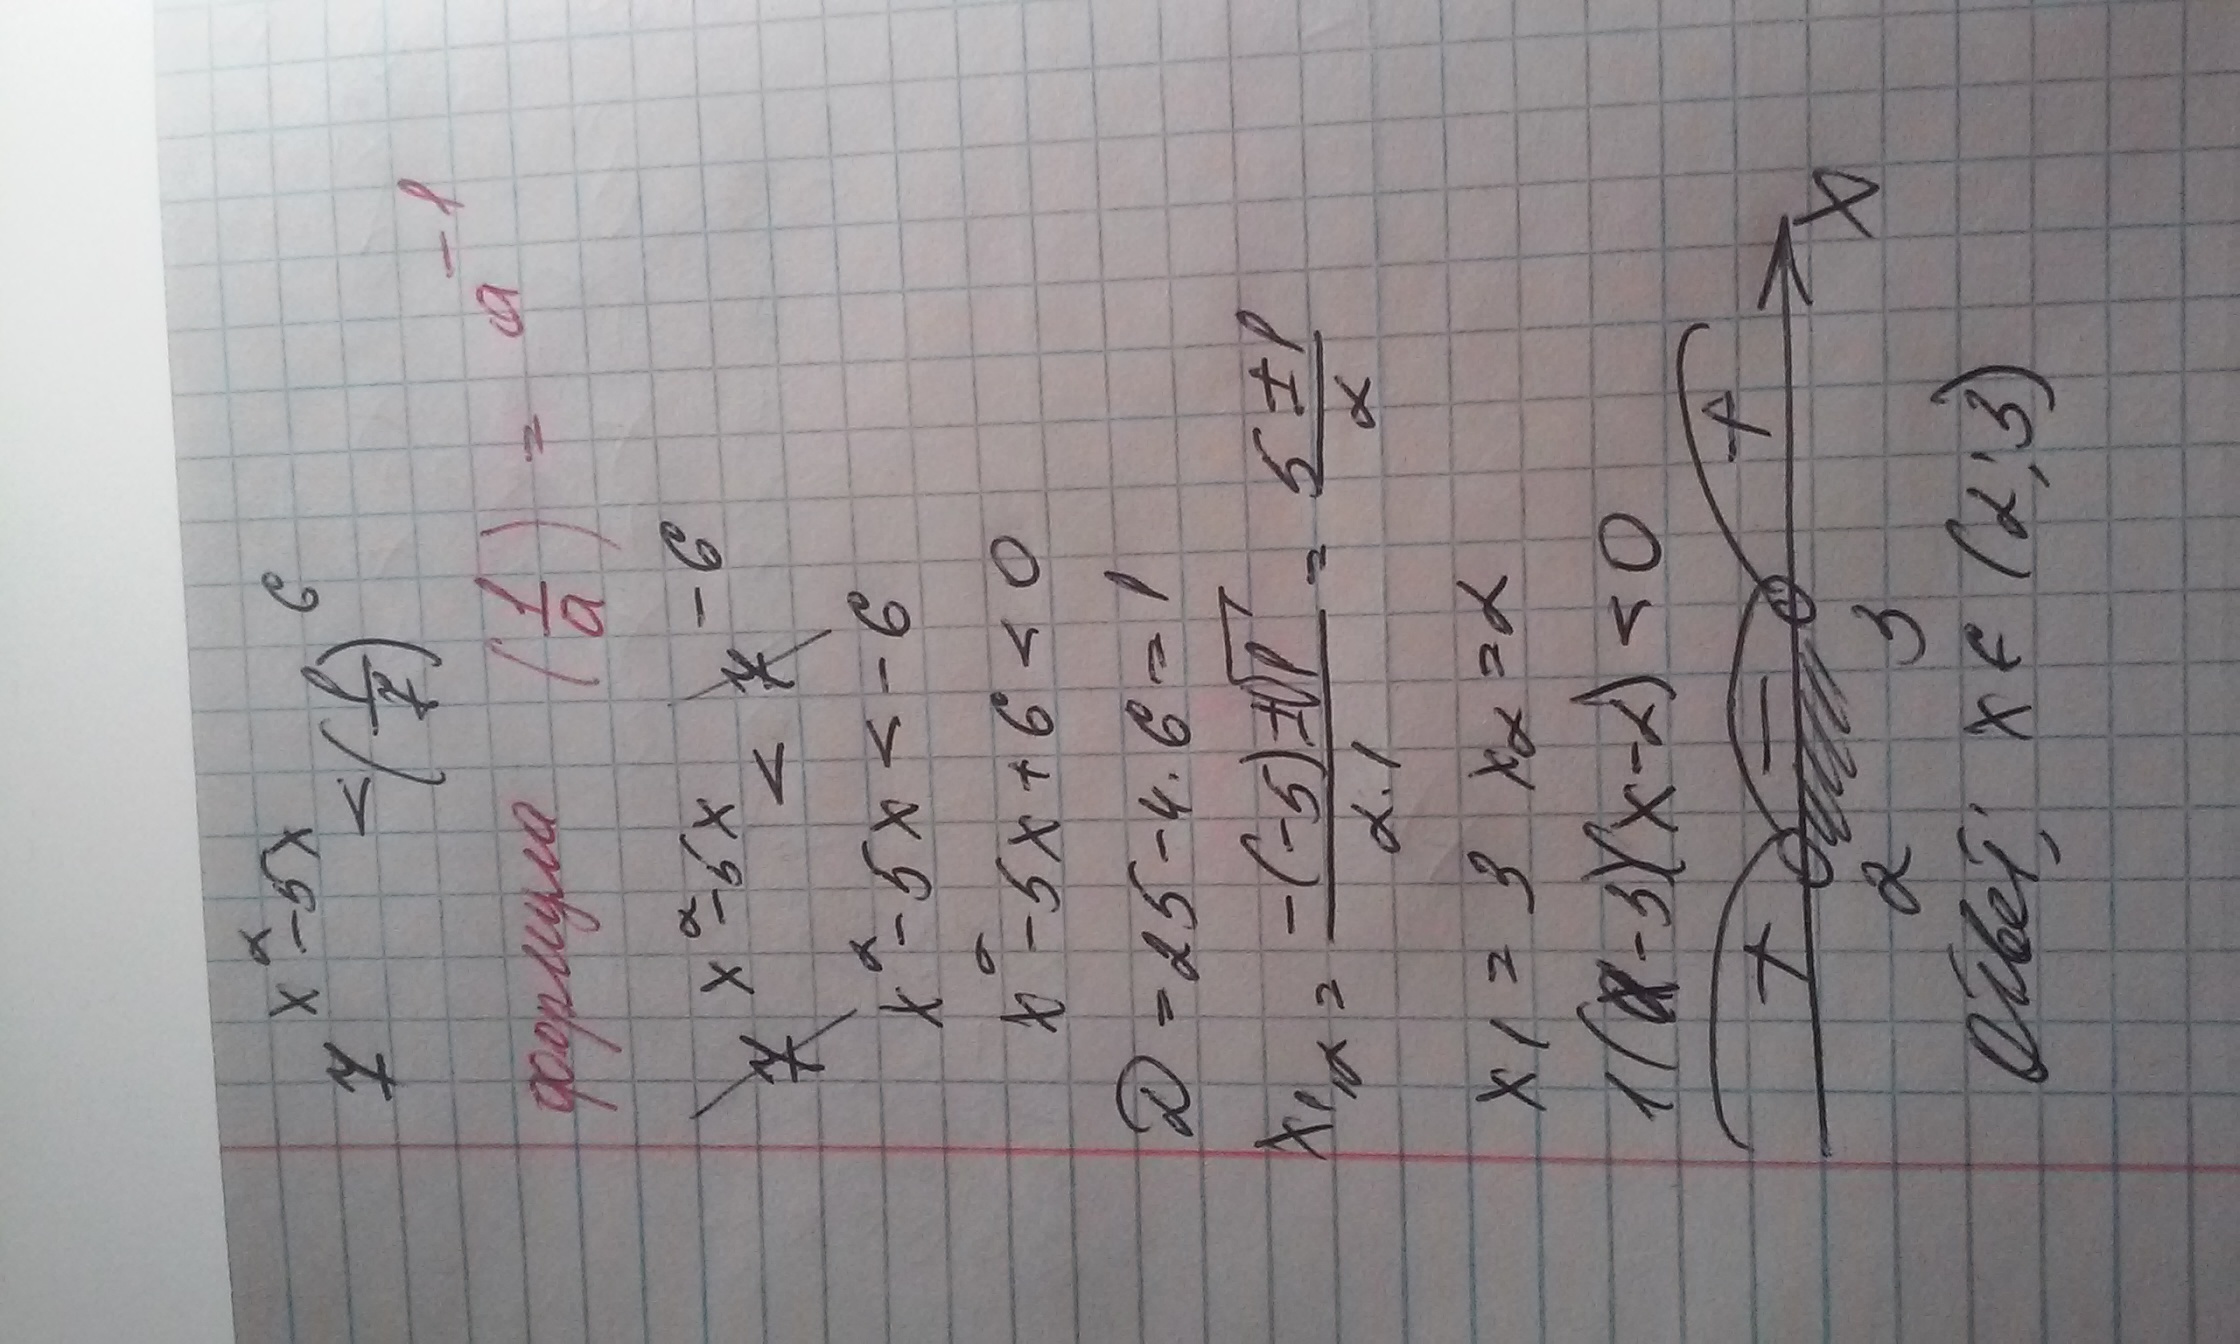 7^(x²-5x) < (1/7)^6
формула (1/a) = a^(-1)
7^(x²-5x) < 7^(-6)
x²-5x < -6
x²-5x+6 < 0
D = 25-4·6 = 1
x1,2 = (-(-5)±√1)/(2·1) = (5±1)/2
x1 = 3 x2 = 2
1(x-3)(x-2) < 0
+ - + X
2 3
Ответ: x ∈ (2;3)